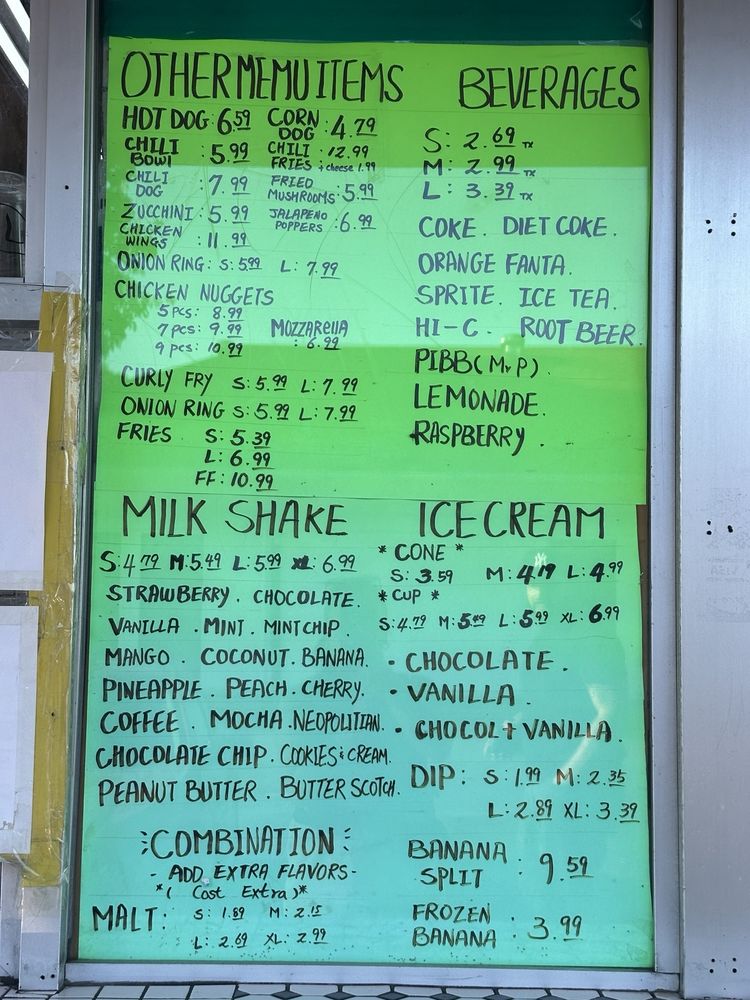 OTHER MEMU ITEMS
HOT DOG: 6.59 CORN DOG: 4.79
CHILI BOWL: 5.99 CHILI FRIES: 12.99 + cheese 1.99
CHILI DOG: 7.99 FRIED MUSHROOMS: 5.99
ZUCCHINI: 5.99 JALAPENO POPPERS: 6.99
CHICKEN WINGS: 11.99
ONION RING: S: 5.99 L: 7.99
CHICKEN NUGGETS
5 PCS: 8.99
7 PCS: 9.99 MOZZARELLA : 6.99
9 PCS: 10.99
CURLY FRY S: 5.99 L: 7.99
ONION RING S: 5.99 L: 7.99
FRIES S: 5.39
L: 6.99
FF: 10.99
BEVERAGES
S: 2.69 TX
M: 2.99 TX
L: 3.39 TX
COKE. DIET COKE.
ORANGE FANTA.
SPRITE. ICE TEA.
HI-C. ROOT BEER.
PIBB (Mr P).
LEMONADE.
RASPBERRY.
MILK SHAKE
S: 4.79 M: 5.49 L: 5.99 XL: 6.99
STRAWBERRY. CHOCOLATE.
VANILLA. MINT. MINTCHIP.
MANGO. COCONUT. BANANA.
PINEAPPLE. PEACH. CHERRY.
COFFEE. MOCHA. NEOPOLITIAN.
CHOCOLATE CHIP. COOKIES & CREAM.
PEANUT BUTTER. BUTTER SCOTCH.
COMBINATION
- ADD EXTRA FLAVORS -
*( Cost Extra )*
MALT: S: 1.89 M: 2.15
L: 2.69 XL: 2.99
ICE CREAM
* CONE *
S: 3.59 M: 4.19 L: 4.99
* CUP *
S: 4.79 M: 5.49 L: 5.99 XL: 6.99
• CHOCOLATE.
• VANILLA.
• CHOCOL + VANILLA.
DIP: S: 1.99 M: 2.35
L: 2.89 XL: 3.39
BANANA SPLIT : 9.59
FROZEN BANANA : 3.99